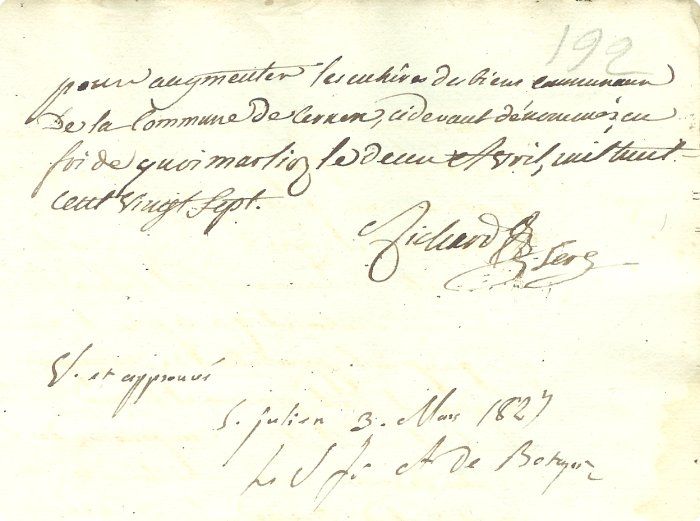 192
pour augmenter les enchères des biens communaux
De la Commune de Cernex, cidevant dénommés en
foi de quoi marlioz le deux Avril, mil huit
cent vingt sept.
Richard
V. et approuvé
S. Julien 3. Mars 1827
A de